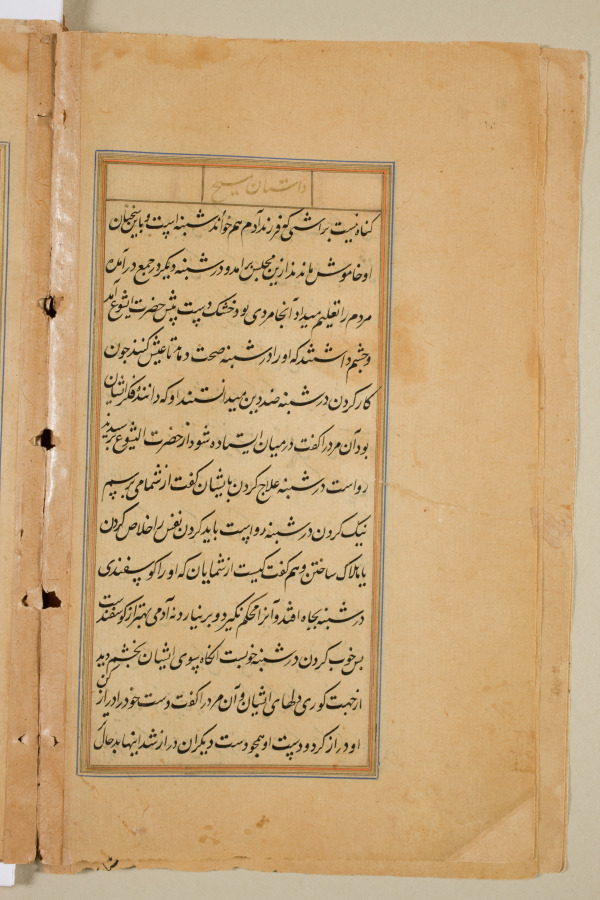 داستان مسیح
کناه نیست براشمی که فرزند آدم هم خواند شنبه است و باین سخنان
او خاموش ماندند ازین مجلس برامد و در شنبه دیگر در جمع درآمده
مردم را تعلیم میداد آنجا مردی بود خشک دست پیش حضرت ایشوع آمد
و چشم داشتند که او را در شنبه صحت دهد تا عیش کنند چون
کار کردن در شنبه ضد دین میدانستند او که دانند فکر ایشان
بود آن مرد را گفت در میان ایستاده شود از حضرت ایشوع پرسیدند
رواست در شنبه علاج کردن بایشان گفت از شما می پرسم
نیک کردن در شنبه رواست یا بد کردن نفس را خلاص کردن
یا هلاک ساختن و هم گفت کیست از شمایان که او را کوسفندی
در شنبه بچاه افتد و آنرا محکم نگیرد و بر نیارد نه آدمی بهتر از کوسفندست
بس خوب کردن در شنبه خوبست انکاه بسوی ایشان بخشم دید
از جهت کوری دلهای ایشان و آن مرد را گفت دست خود را دراز کن
او دراز کرد و دست او همچو دست دیکران دراز شد اینها بد حال تر